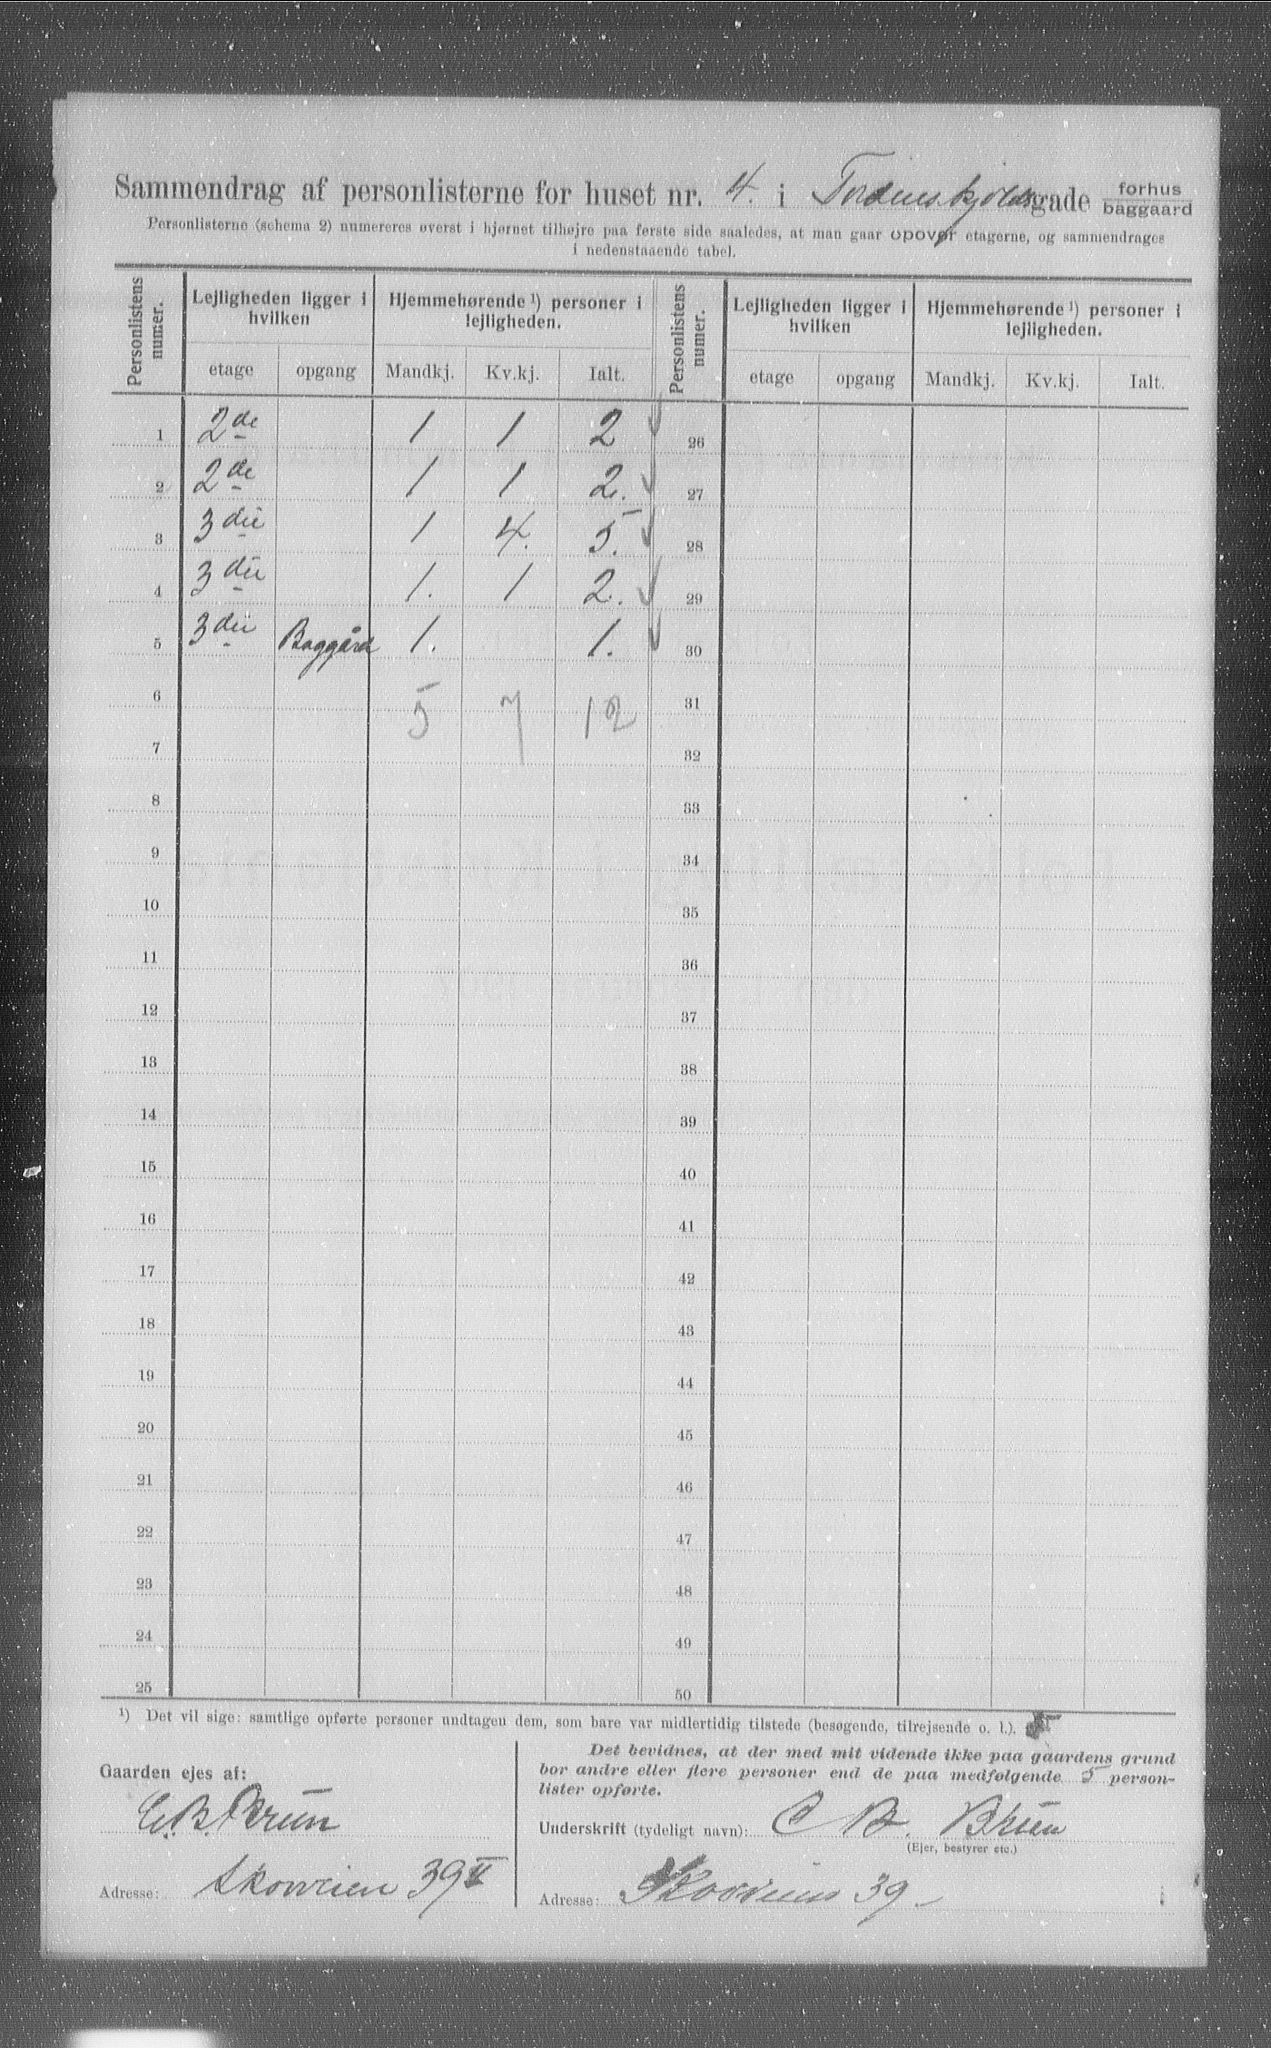 Sammendrag af personlisterne for huset nr. 4. i Tordenskjoldsgade forhus baggaard
Personlisterne (schema 2) numereres øverst i hjørnet tilhøjre paa første side saaledes, at man gaar opover etagerne, og sammendrages
i nedenstaaende tabel.
Personlistens numer. Lejligheden ligger i hvilken Hjemmehørende ¹) personer i lejligheden. Personlistens numer. Lejligheden ligger i hvilken Hjemmehørende ¹) personer i lejligheden.
etage opgang Mandkj. Kv.kj. Ialt. etage opgang Mandkj. Kv.kj. Ialt.
1 2de 1 1 2 26
2 2de 1 1 2. 27
3 3die 1 4. 5. 28
4 3die 1. 1 2. 29
5 3die Baggård 1. 1. 30
6 5 7 12 31
7 32
8 33
9 34
10 35
11 36
12 37
13 38
14 39
15 40
16 41
17 42
18 43
19 44
20 45
21 46
22 47
23 48
24 49
25 50
¹) Det vil sige: samtlige opførte personer undtagen dem, som bare var midlertidig tilstede (besøgende, tilrejsende o. l.).
Gaarden ejes af:
C.B. Bruun
Adresse: Skovveien 39 II
Det bevidnes, at der med mit vidende ikke paa gaardens grund
bor andre eller flere personer end de paa medfølgende 5 person-
lister opførte.
Underskrift (tydeligt navn): C B. Bruun
(Ejer, bestyrer etc.)
Adresse: Skovveien 39